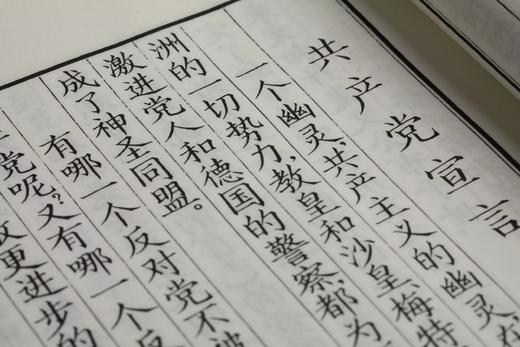 共产党宣言
一个幽灵，共产主义的幽灵，在
洲的一切势力，教皇和沙皇、梅特
激进党人和德国的警察都为
成了神圣同盟。
有哪一个反对党不被
党呢？又有哪一个反
更进步的